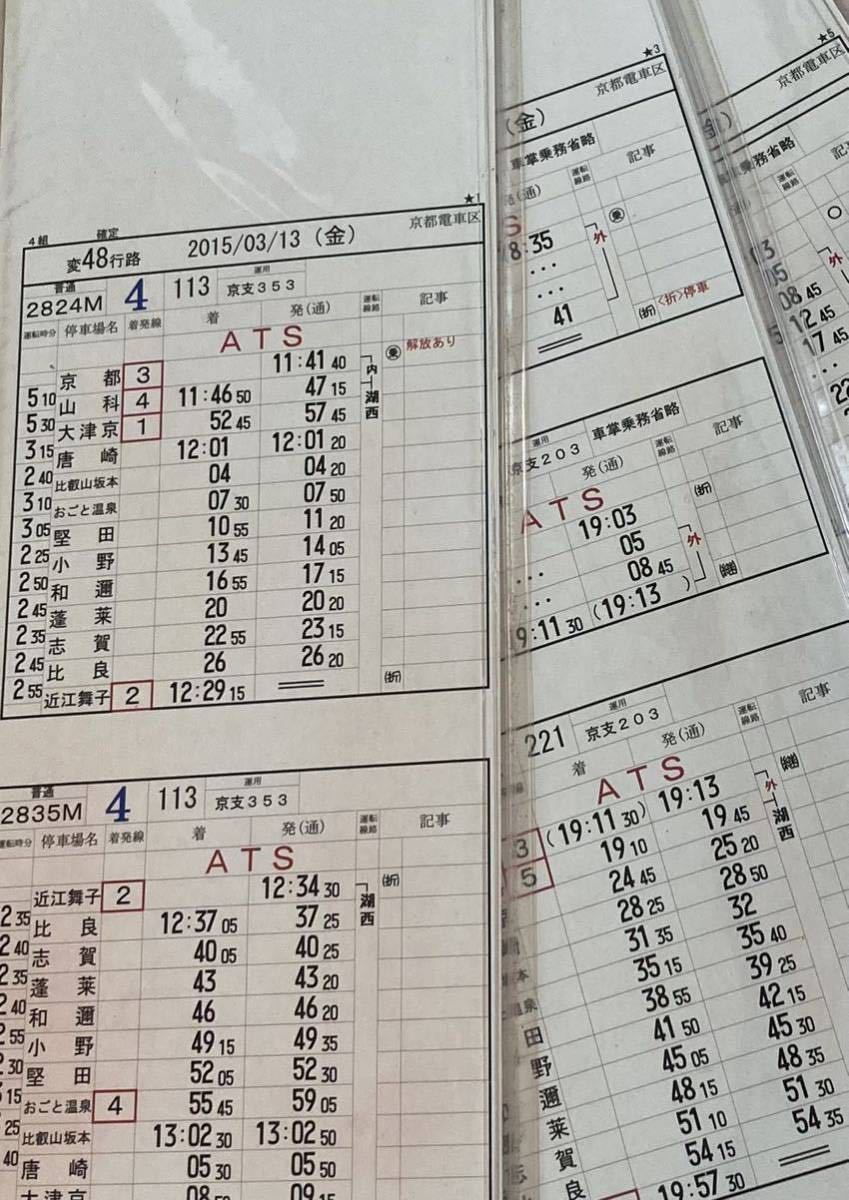 ★1
4組 確定 京都電車区
変48行路 2015/03/13 (金)
普通 運用
2824M 4 113 京支353
運転時分 停車場名 着発線 着 発(通) 運転線路 記事
ATS
京都 3 11:41 40 内 乗 解放あり
5 10 山科 4 11:46 50 47 15 湖西
5 30 大津京 1 52 45 57 45
3 15 唐崎 12:01 12:01 20
2 40 比叡山坂本 04 04 20
3 10 おごと温泉 07 30 07 50
3 05 堅田 10 55 11 20
2 25 小野 13 45 14 05
2 50 和邇 16 55 17 15
2 45 蓬莱 20 20 20
2 35 志賀 22 55 23 15
2 45 比良 26 26 20
2 55 近江舞子 2 12:29 15 (折)
普通 運用
2835M 4 113 京支353
運転時分 停車場名 着発線 着 発(通) 運転線路 記事
ATS
近江舞子 2 12:34 30 湖西 (折)
2 35 比良 12:37 05 37 25
2 40 志賀 40 05 40 25
2 35 蓬莱 43 43 20
2 40 和邇 46 46 20
2 55 小野 49 15 49 35
2 30 堅田 52 05 52 30
3 15 おごと温泉 4 55 45 59 05
25 比叡山坂本 13:02 30 13:02 50
40 唐崎 05 30 05 50
大津京 08 50 09 15
★3
京都電車区
(金)
車掌乗務省略
発(通) 運転線路 記事
S
18:35 外 乗
...
...
41 (折) <折>停車
運用
京支203 車掌乗務省略
発(通) 運転線路 記事
ATS
19:03 (折)
... 05 外
... 08 45
9:11 30 (19:13 ) (継)
運用
221 京支203
着 発(通) 運転線路 記事
ATS
3 (19:11 30) 19:13 外 (継)
5 19 10 19 45 湖西
24 45 25 20
28 25 28 50
31 35 32
本 35 15 35 40
温泉 38 55 39 25
田 41 50 42 15
野 45 05 45 30
邇 48 15 48 35
莱 51 10 51 30
賀 54 15 54 35
良 19:57 30
★5
京都電車区
金)
乗務省略
運転線路 記事
(通)
03
05
08 45 外
5 12 45
17 45
...
22